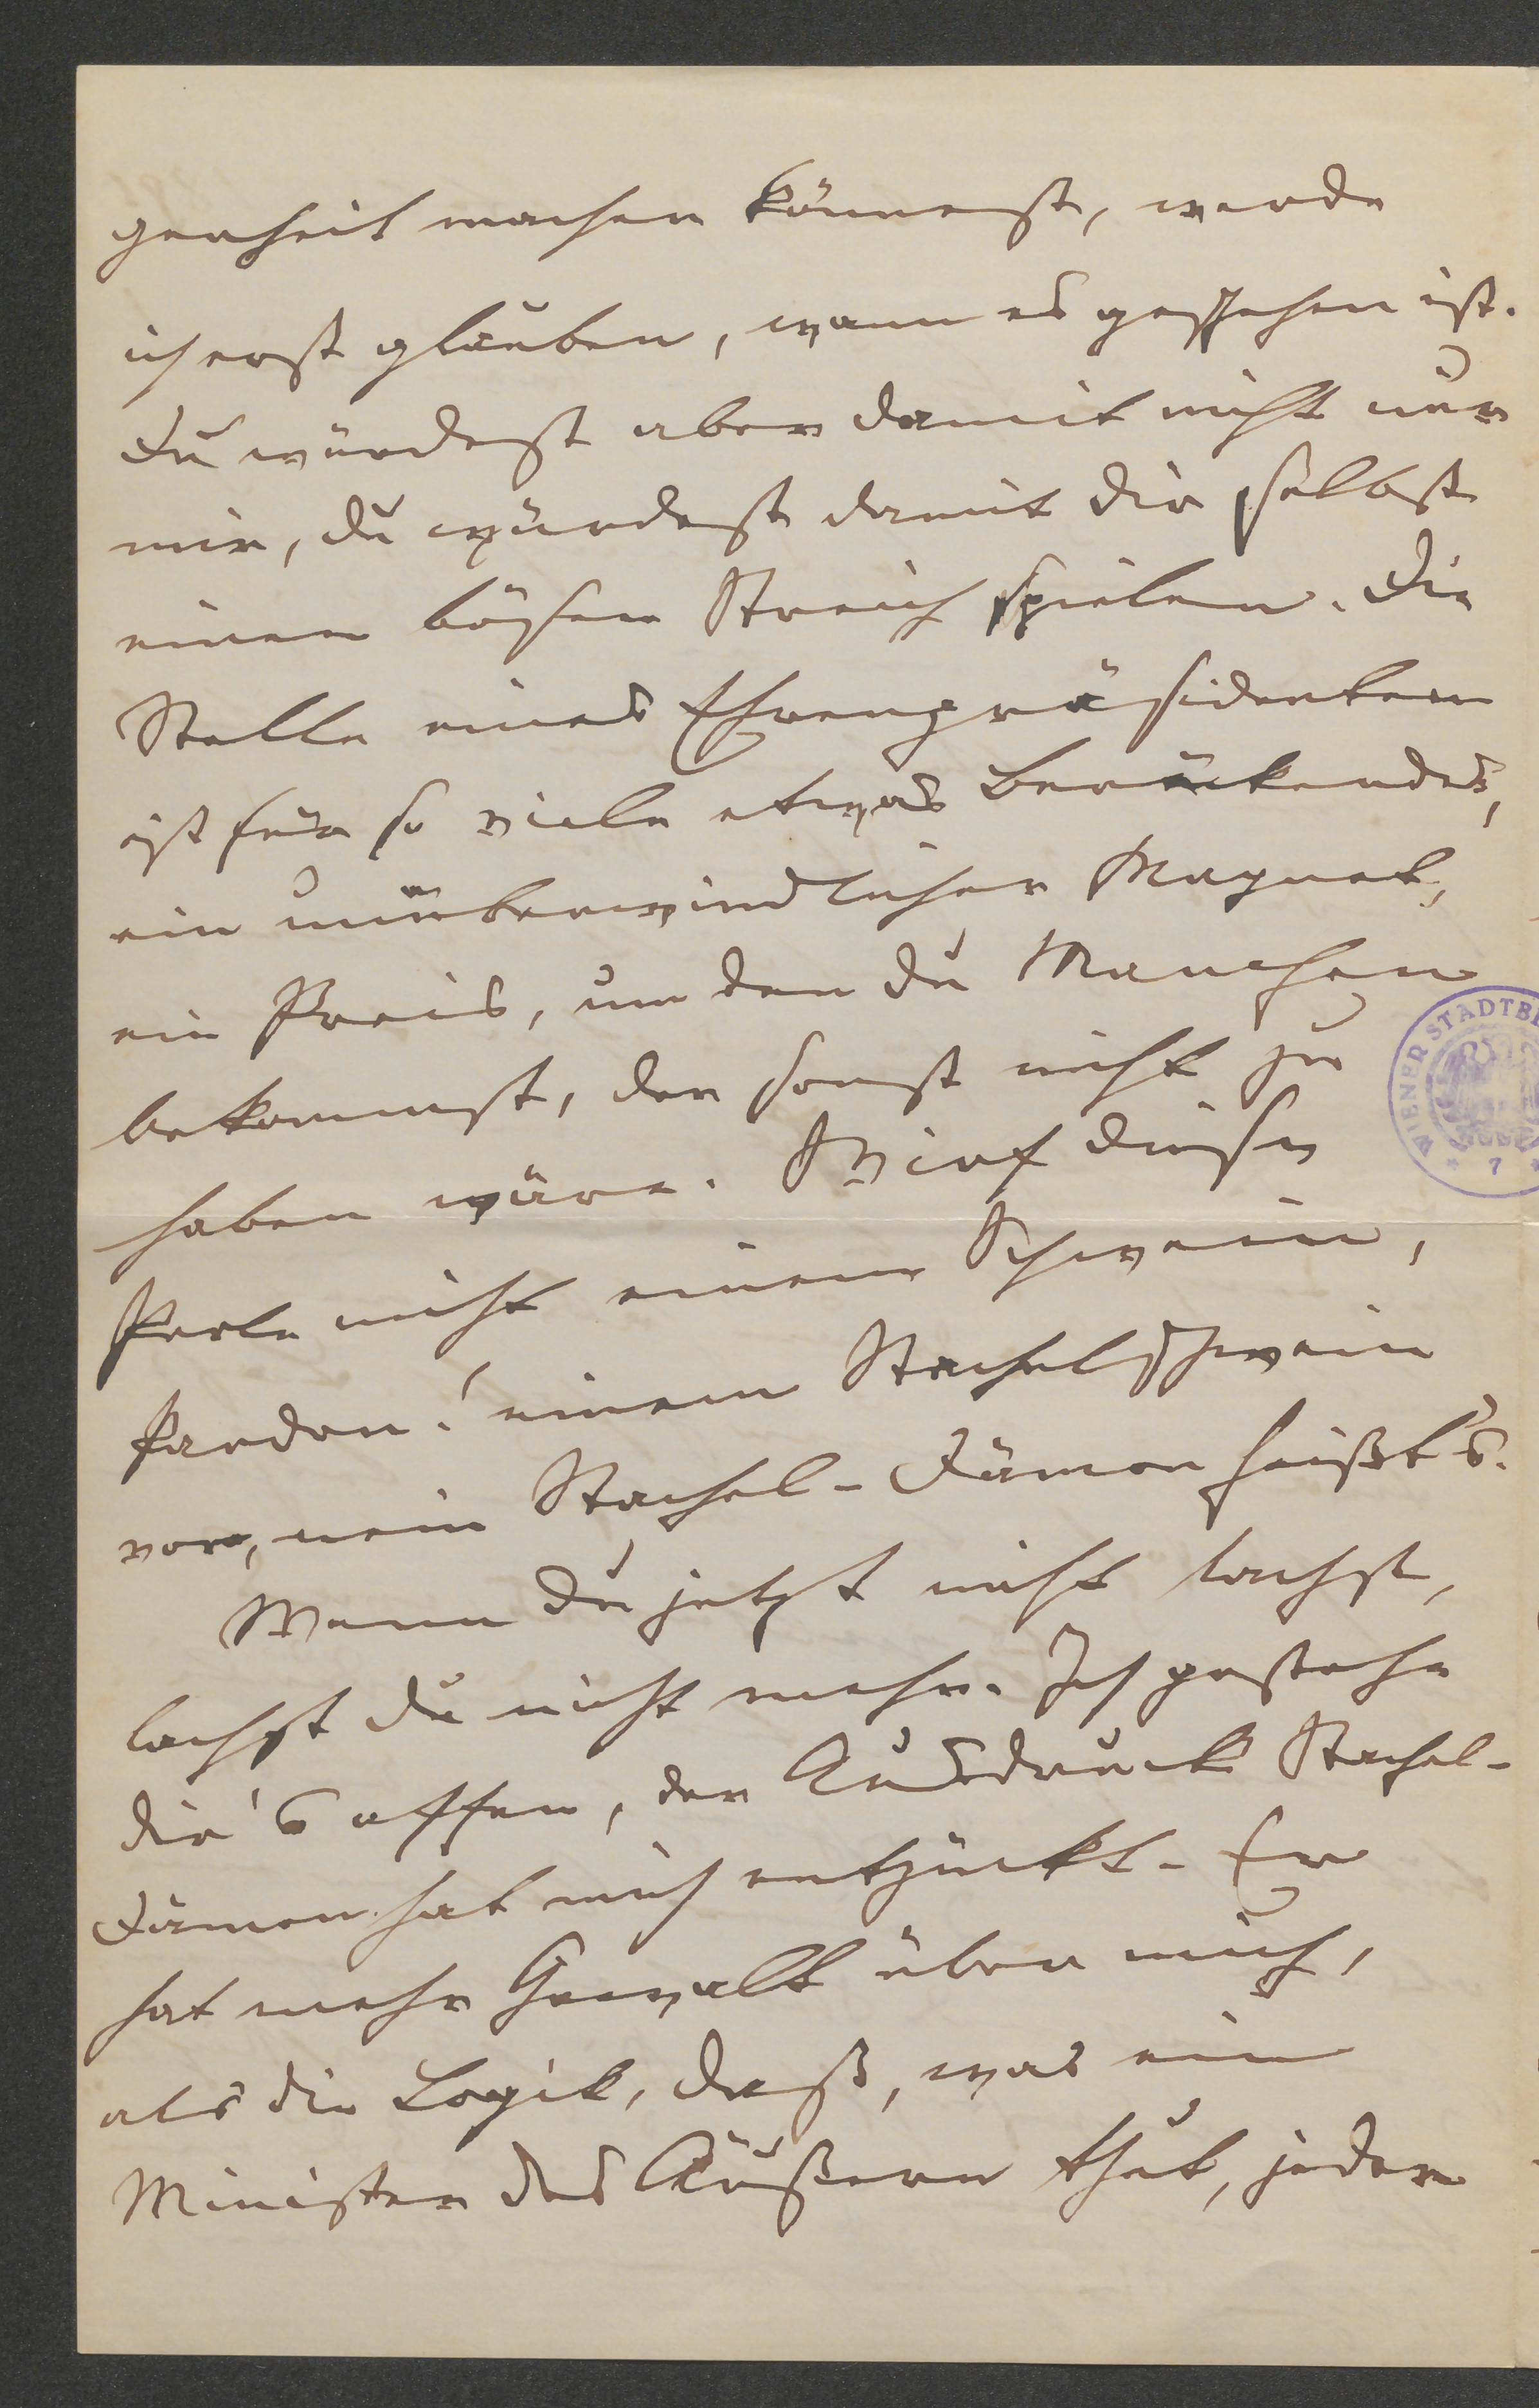 genheit machen könnest, werde
ich erst glauben, wann es geschehen ist.
Du würdest aber damit nicht nur
mir, du würdest damit dir selbst
einen bösen Streich spielen. Die
Stelle eines Ehrenpräsidenten
ist für so viele etwas Berückendes,
ein unüberwindlicher Magnet,
ein Preis, um den du Manchen
bekommst, der sonst nicht zu
haben wäre. Wirf diese
Perle nicht einem Schwein,
Pardon! einem Stachelschwein
vor, nein Stachel-Dämon heißt's.
Wenn du jetzt nicht lachst,
lachst du nicht mehr. Ich gestehe
dir's offen, der Ausdruck Stachel-
Dämon hat mich entzückt. Er
hat mehr Gewalt über mich,
als die Logik, daß, was ein
Minister des Äußern thut, jeder
WIENER STADTB
7